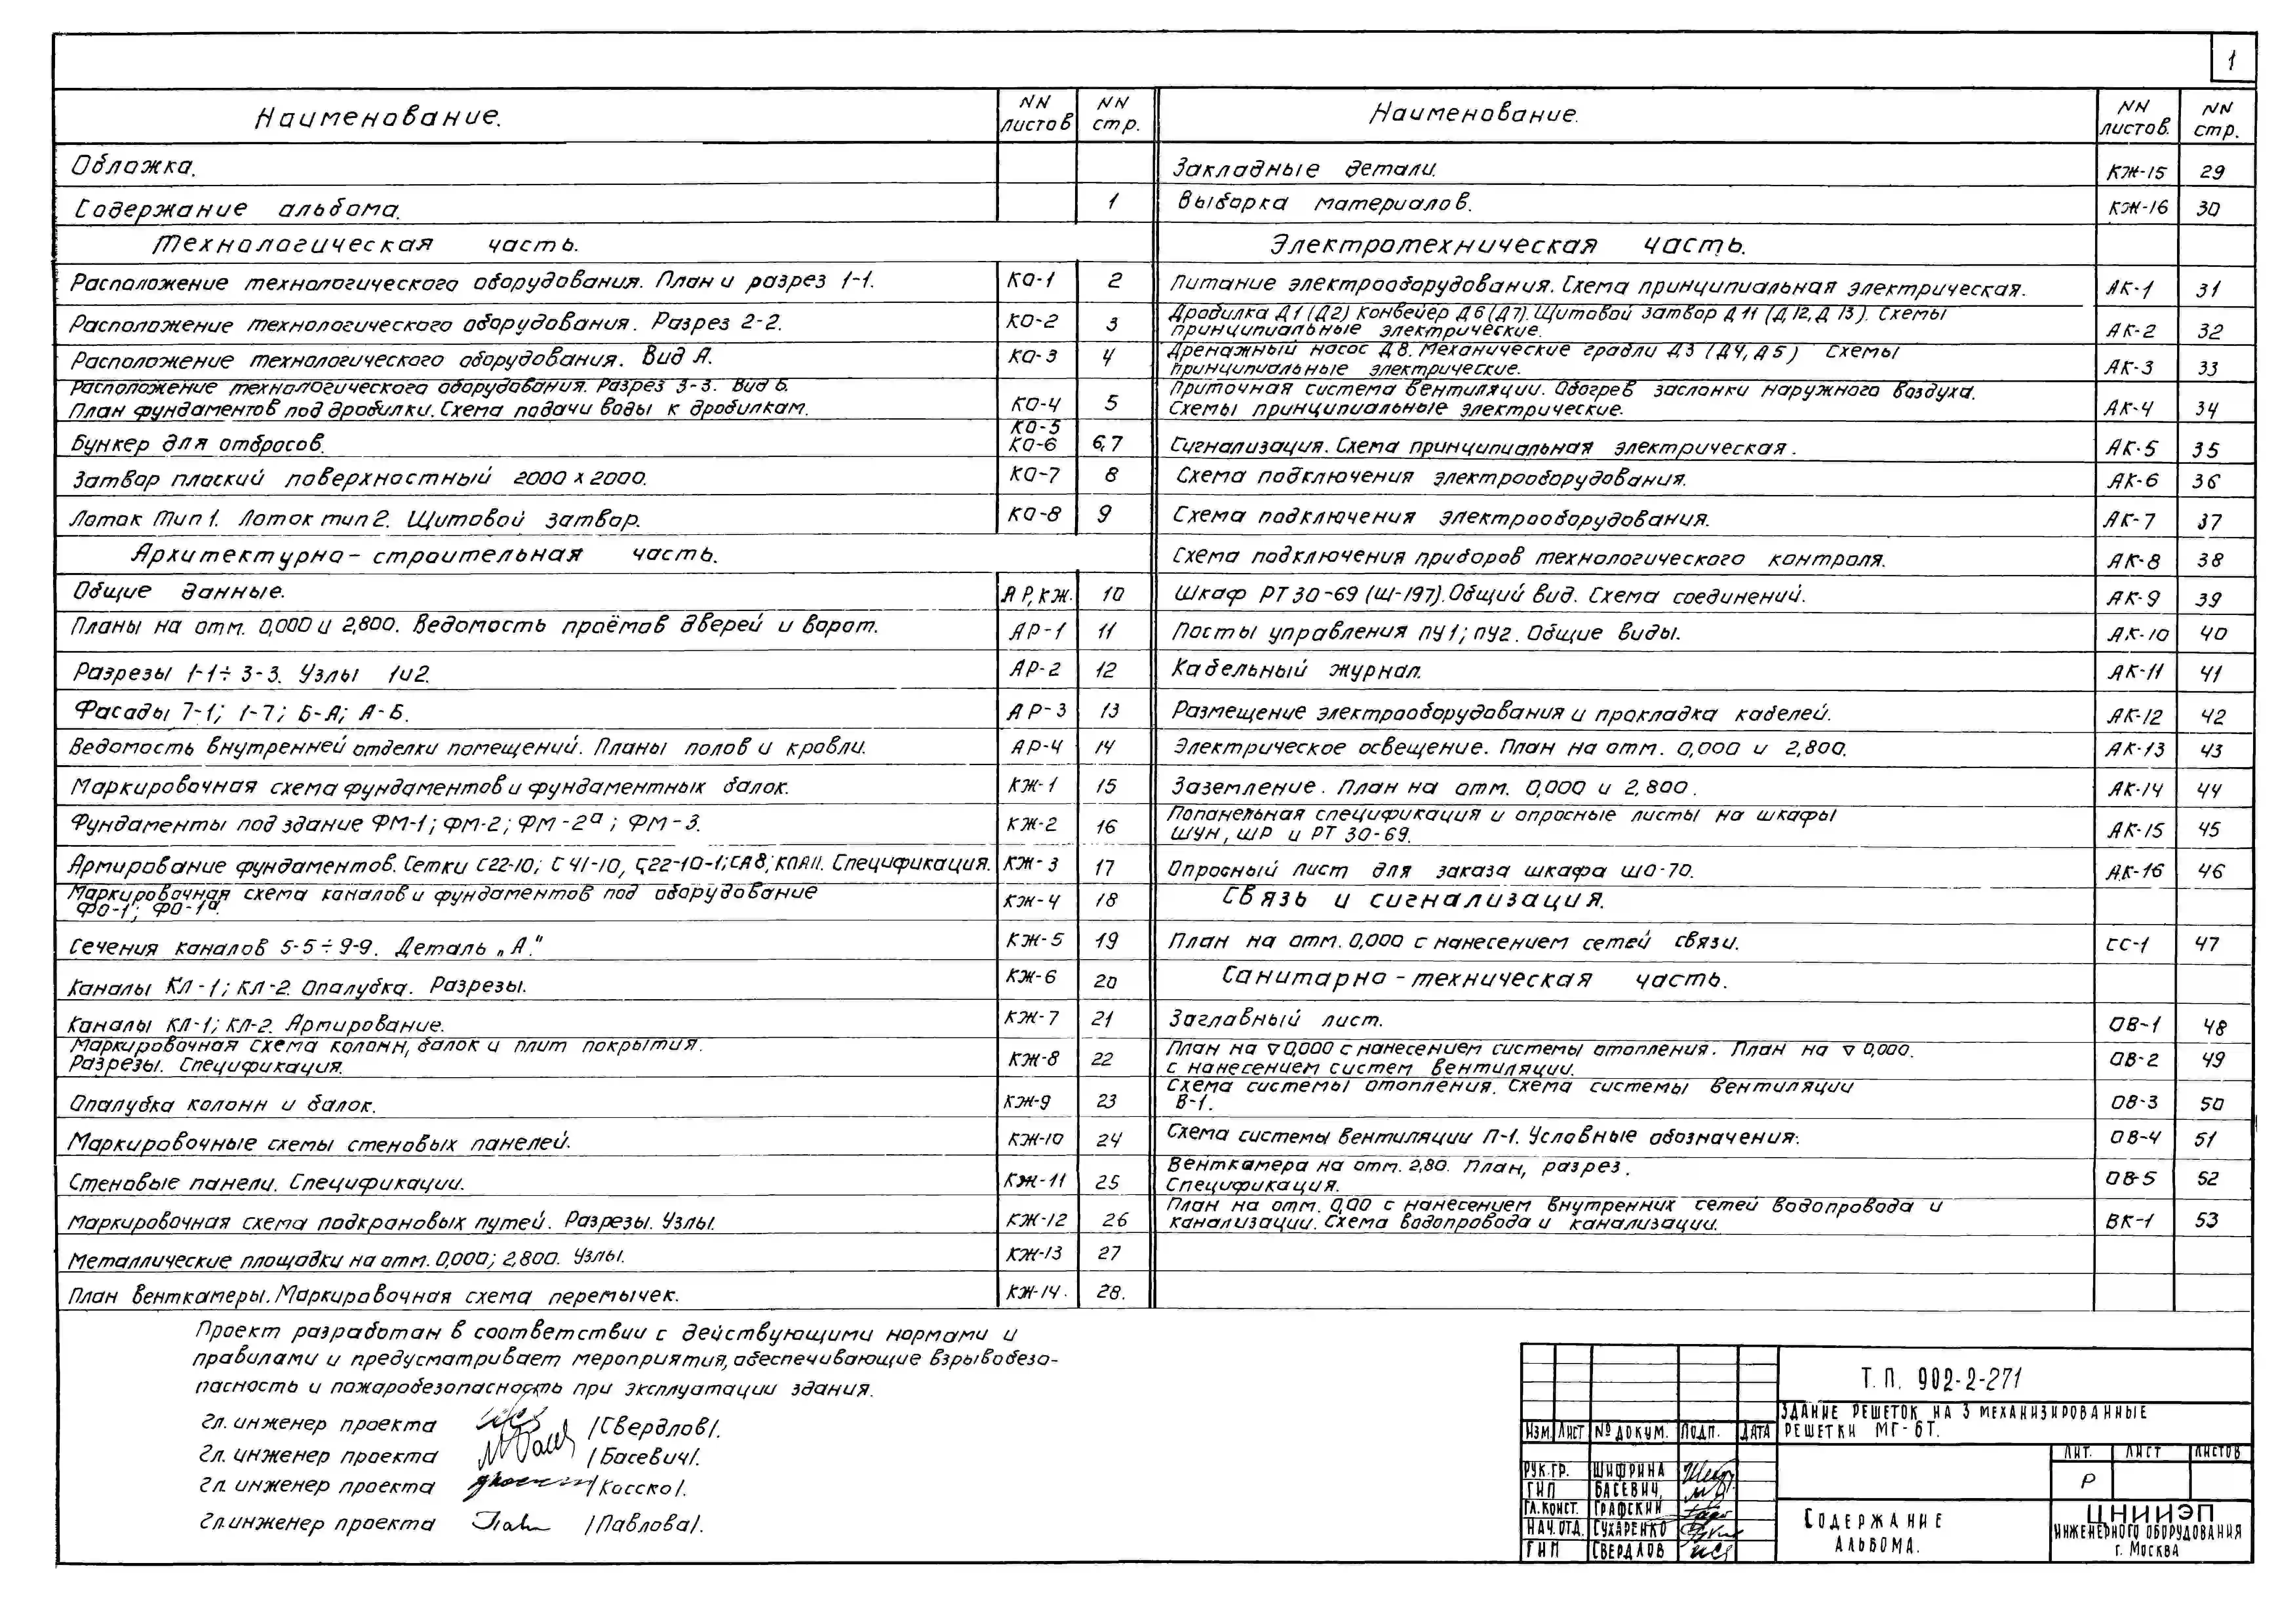 1
Наименование. NN листов NN стр.
Обложка.
Содержание альбома. 1
Технологическая часть.
Расположение технологического оборудования. План и разрез 1-1. КО-1 2
Расположение технологического оборудования. Разрез 2-2. КО-2 3
Расположение технологического оборудования. Вид А. КО-3 4
Расположение технологического оборудования. Разрез 3-3. Вид Б.
План фундаментов под дробилки. Схема подачи воды к дробилкам. КО-4 5
Бункер для отбросов. КО-5 КО-6 6,7
Затвор плоский поверхностный 2000 х 2000. КО-7 8
Лоток тип 1. Лоток тип 2. Щитовой затвор. КО-8 9
Архитектурно-строительная часть.
Общие данные. АР, КЖ. 10
Планы на отм. 0,000 и 2,800. Ведомость проёмов дверей и ворот. АР-1 11
Разрезы 1-1÷3-3. Узлы 1и2. АР-2 12
Фасады 7-1; 1-7; Б-А; А-Б. АР-3 13
Ведомость внутренней отделки помещений. Планы полов и кровли. АР-4 14
Маркировочная схема фундаментов и фундаментных балок. КЖ-1 15
Фундаменты под здание ФМ-1; ФМ-2; ФМ-2а; ФМ-3. КЖ-2 16
Армирование фундаментов. Сетки С22-10; С41-10, С22-10-1; СА8; КПАII. Спецификация. КЖ-3 17
Маркировочная схема каналов и фундаментов под оборудование
ФО-1; ФО-1а. КЖ-4 18
Сечения каналов 5-5÷9-9. Деталь „А." КЖ-5 19
Каналы КЛ-1; КЛ-2. Опалубка. Разрезы. КЖ-6 20
Каналы КЛ-1; КЛ-2. Армирование. КЖ-7 21
Маркировочная схема колонн, балок и плит покрытия.
Разрезы. Спецификация. КЖ-8 22
Опалубка колонн и балок. КЖ-9 23
Маркировочные схемы стеновых панелей. КЖ-10 24
Стеновые панели. Спецификации. КЖ-11 25
Маркировочная схема подкрановых путей. Разрезы. Узлы. КЖ-12 26
Металлические площадки на отм. 0,000; 2,800. Узлы. КЖ-13 27
План венткамеры. Маркировочная схема перемычек. КЖ-14. 28.
Наименование. NN листов. NN стр.
Закладные детали. КЖ-15 29
Выборка материалов. КЖ-16 30
Электротехническая часть.
Питание электрооборудования. Схема принципиальная электрическая. АК-1 31
Дробилка Д1 (Д2) Конвейер Д6 (Д7). Щитовой затвор Д11 (Д12, Д13). Схемы
принципиальные электрические. АК-2 32
Дренажный насос Д8. Механические грабли Д3 (Д4, Д5) Схемы
принципиальные электрические. АК-3 33
Приточная система вентиляции. Обогрев заслонки наружного воздуха.
Схемы принципиальные электрические. АК-4 34
Сигнализация. Схема принципиальная электрическая. АК-5 35
Схема подключения электрооборудования. АК-6 36
Схема подключения электрооборудования. АК-7 37
Схема подключения приборов технологического контроля. АК-8 38
Шкаф РТ30-69 (Ш-197). Общий вид. Схема соединений. АК-9 39
Посты управления ПУ1; ПУ2. Общие виды. АК-10 40
Кабельный журнал. АК-11 41
Размещение электрооборудования и прокладка кабелей. АК-12 42
Электрическое освещение. План на отм. 0,000 и 2,800. АК-13 43
Заземление. План на отм. 0,000 и 2,800. АК-14 44
Попанельная спецификация и опросные листы на шкафы
ШУН, ШР и РТ 30-69. АК-15 45
Опросный лист для заказа шкафа ШО-70. АК-16 46
Связь и сигнализация.
План на отм. 0,000 с нанесением сетей связи. СС-1 47
Санитарно-техническая часть.
Заглавный лист. ОВ-1 48
План на ▽ 0,000 с нанесением системы отопления. План на ▽ 0,000.
с нанесением систем вентиляции. ОВ-2 49
Схема системы отопления. Схема системы вентиляции
В-1. ОВ-3 50
Схема системы вентиляции П-1. Условные обозначения. ОВ-4 51
Венткамера на отм. 2,80. План, разрез.
Спецификация. ОВ-5 52
План на отм. 0,00 с нанесением внутренних сетей водопровода и
канализации. Схема водопровода и канализации. ВК-1 53
Проект разработан в соответствии с действующими нормами и
правилами и предусматривает мероприятия, обеспечивающие взрывобезо-
пасность и пожаробезопасность при эксплуатации здания.
Гл. инженер проекта /Свердлов/.
Гл. инженер проекта /Басевич/.
Гл. инженер проекта /Косско/.
Гл. инженер проекта /Павлова/.
Т.П. 902-2-271
Здание решеток на 3 механизированные
решетки МГ-6Т.
Изм. Лист № докум. Подп. Дата
Лит. Лист Листов
Р
Рук.гр. Шифрина
ГИП Басевич,
Гл.конст. Графский
Нач.отд. Сухаренко
ГИП Свердлов
Содержание
альбома.
ЦНИИЭП
инженерного оборудования
г. Москва